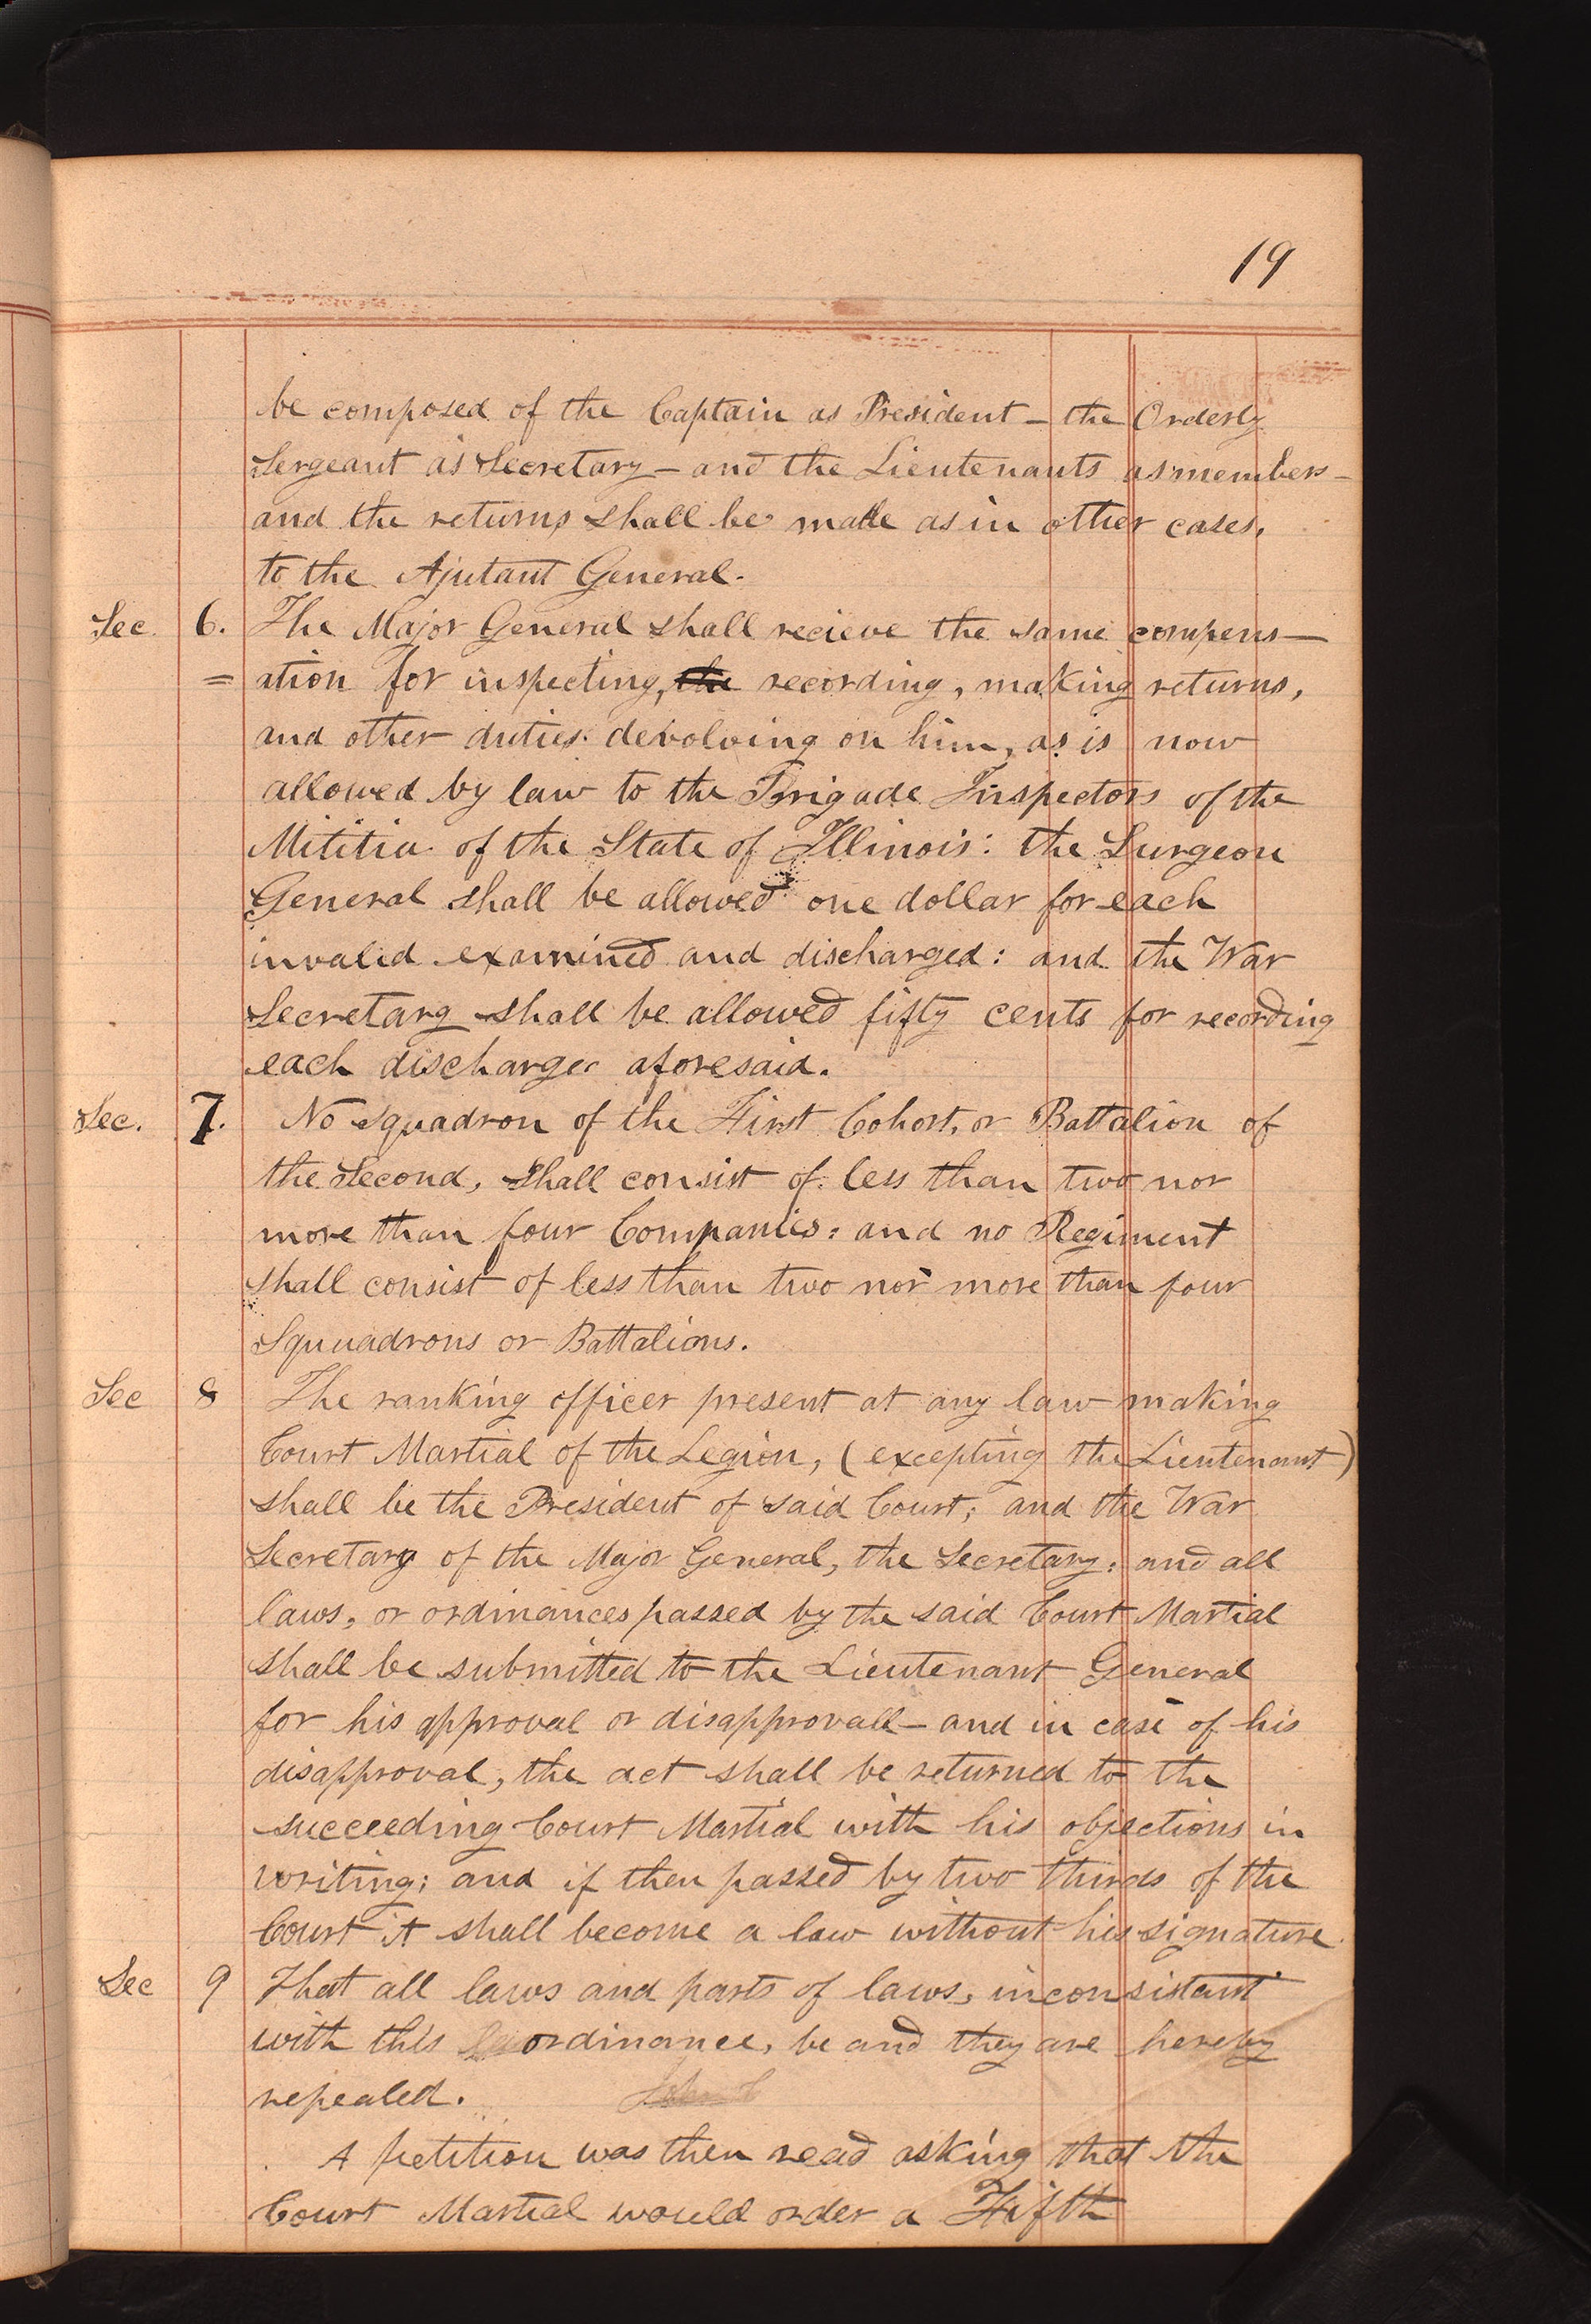 19
be composed of the Captain as President – the Orderly
Sergeant as Secretary – and the Lieutenants as members –
and the returns shall be made as in other cases,
to the Ajutant General.
Sec. 6. The Major General shall recieve the same compens–
= ation for inspecting, the recording, making returns,
and other duties devolving on him, as is now
allowed by law to the Brigade Inspectors of the
Mititia of the State of Illinois: the Surgeon
General shall be allowed one dollar for each
invalid examined and discharged: and the War
Secretary shall be allowed fifty cents for recording
each discharge aforesaid.
Sec. 7. No squadron of the First Cohort, or Battalion of
the Second, shall consist of less than two nor
more than four Companies: and no Regiment
shall consist of less than two nor more than four
Squuadrons or Battalions.
Sec 8 The ranking officer present at any law making
Court Martial of the Legion, (excepting the Lieutenant)
shall be the President of said Court; and the War
Secretary of the Major General, the Secretary: and all
laws, or ordinances passed by the said Court Martial
shall be submitted to the Lieutenant General
for his approval or disapprovall – and in case of his
disapproval, the act shall be returned to the
succeeding Court Martial with his objections in
writing; and if then passed by two thirds of the
Court it shall become a law without his signature.
Sec 9 That all laws and parts of laws, inconsistant
with this ordinance, be and they are hereby
repealed.
A petition was then read asking that the
Court Martial would order a Fifth